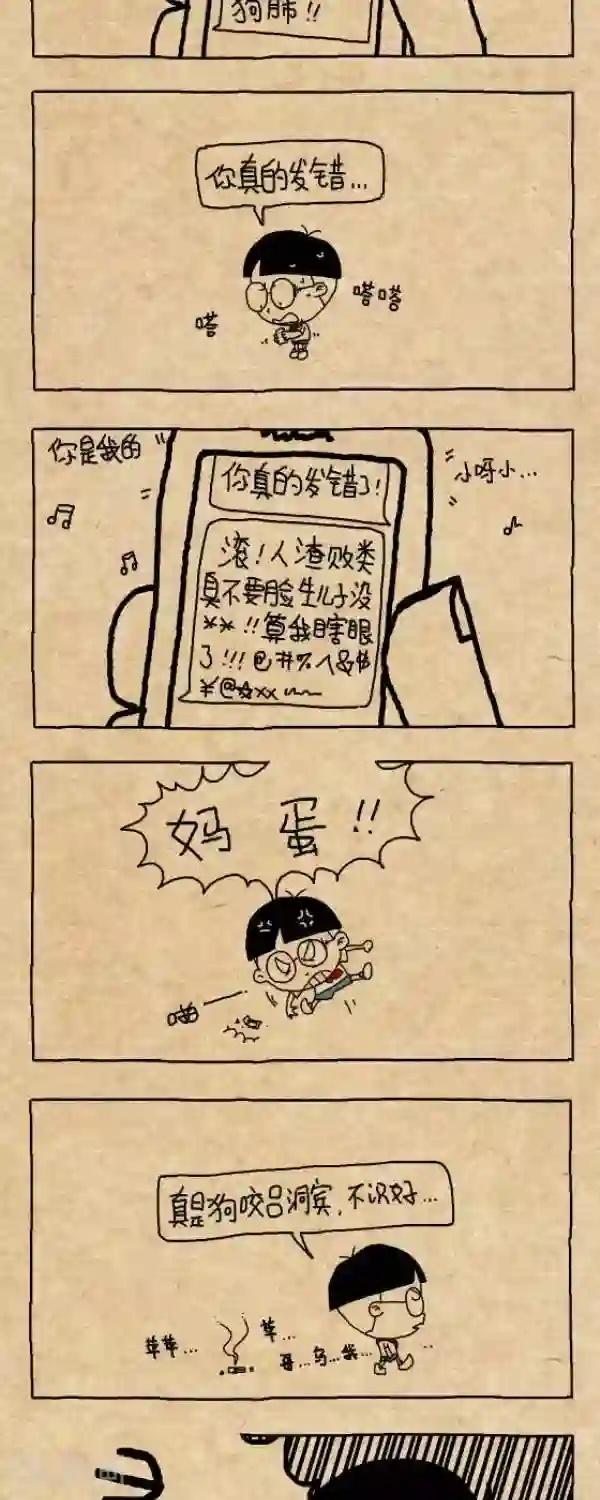 狗肺!!
你真的发错...
嗒嗒
嗒
你是我的
小呀小...
你真的发错了!
滚!人渣败类
真不要脸生儿子没
**!!算我瞎眼
了!!!@#%^&\$
¥@☆xx
妈蛋!!
喵
真是狗咬吕洞宾,不识好...
苹...
苹苹...